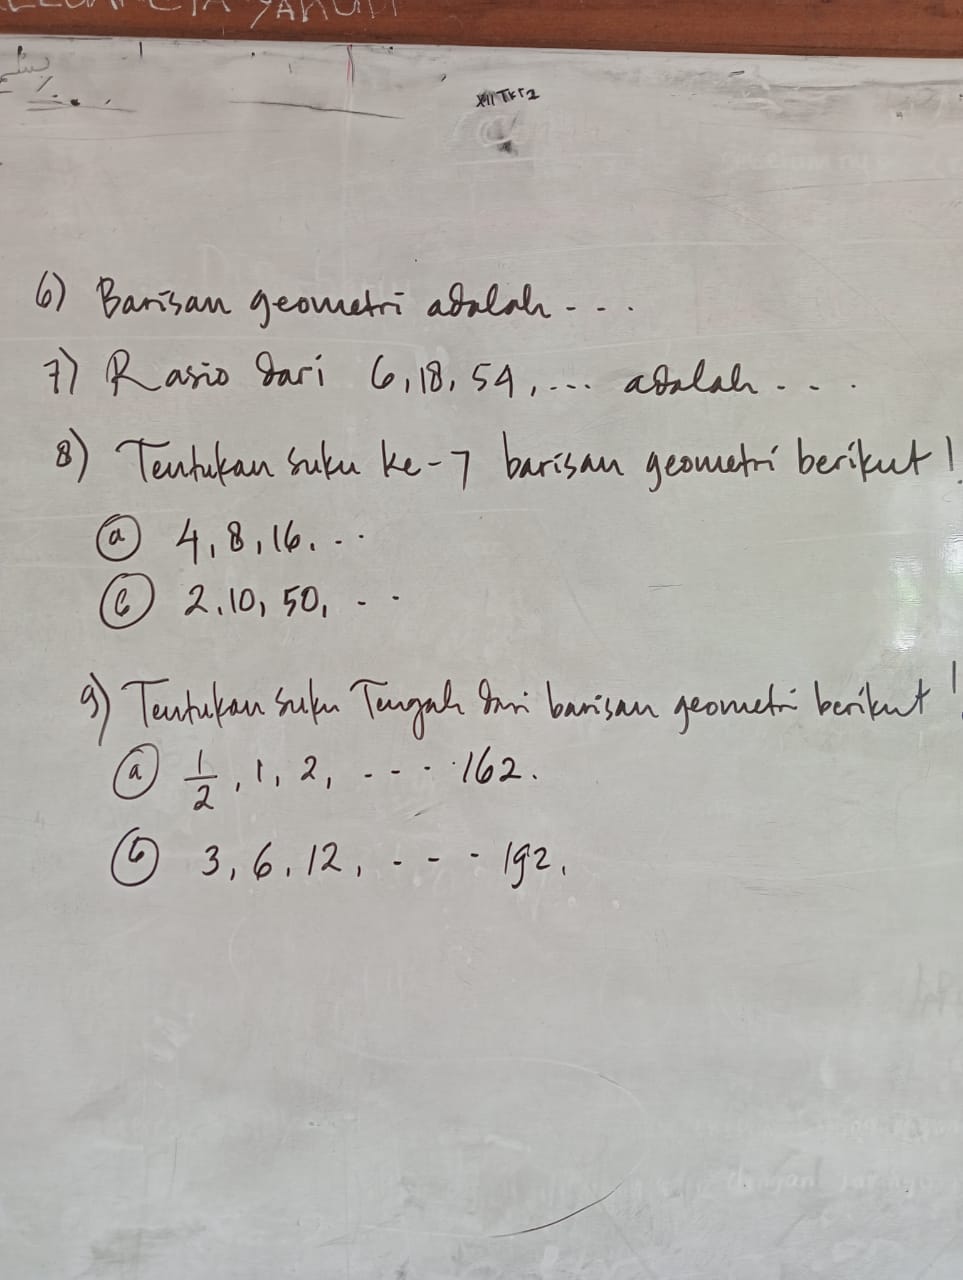 XII TKR2
6) Barisan geometri adalah - - .
7) Rasio dari 6, 18, 54, ... adalah - - .
8) Tentukan suku ke-7 barisan geometri berikut!
a 4, 8, 16, - -
b 2, 10, 50, - -
9) Tentukan suku Tengah dari barisan geometri berikut!
a 1/2, 1, 2, - - - 162.
b 3, 6, 12, - - - 192.